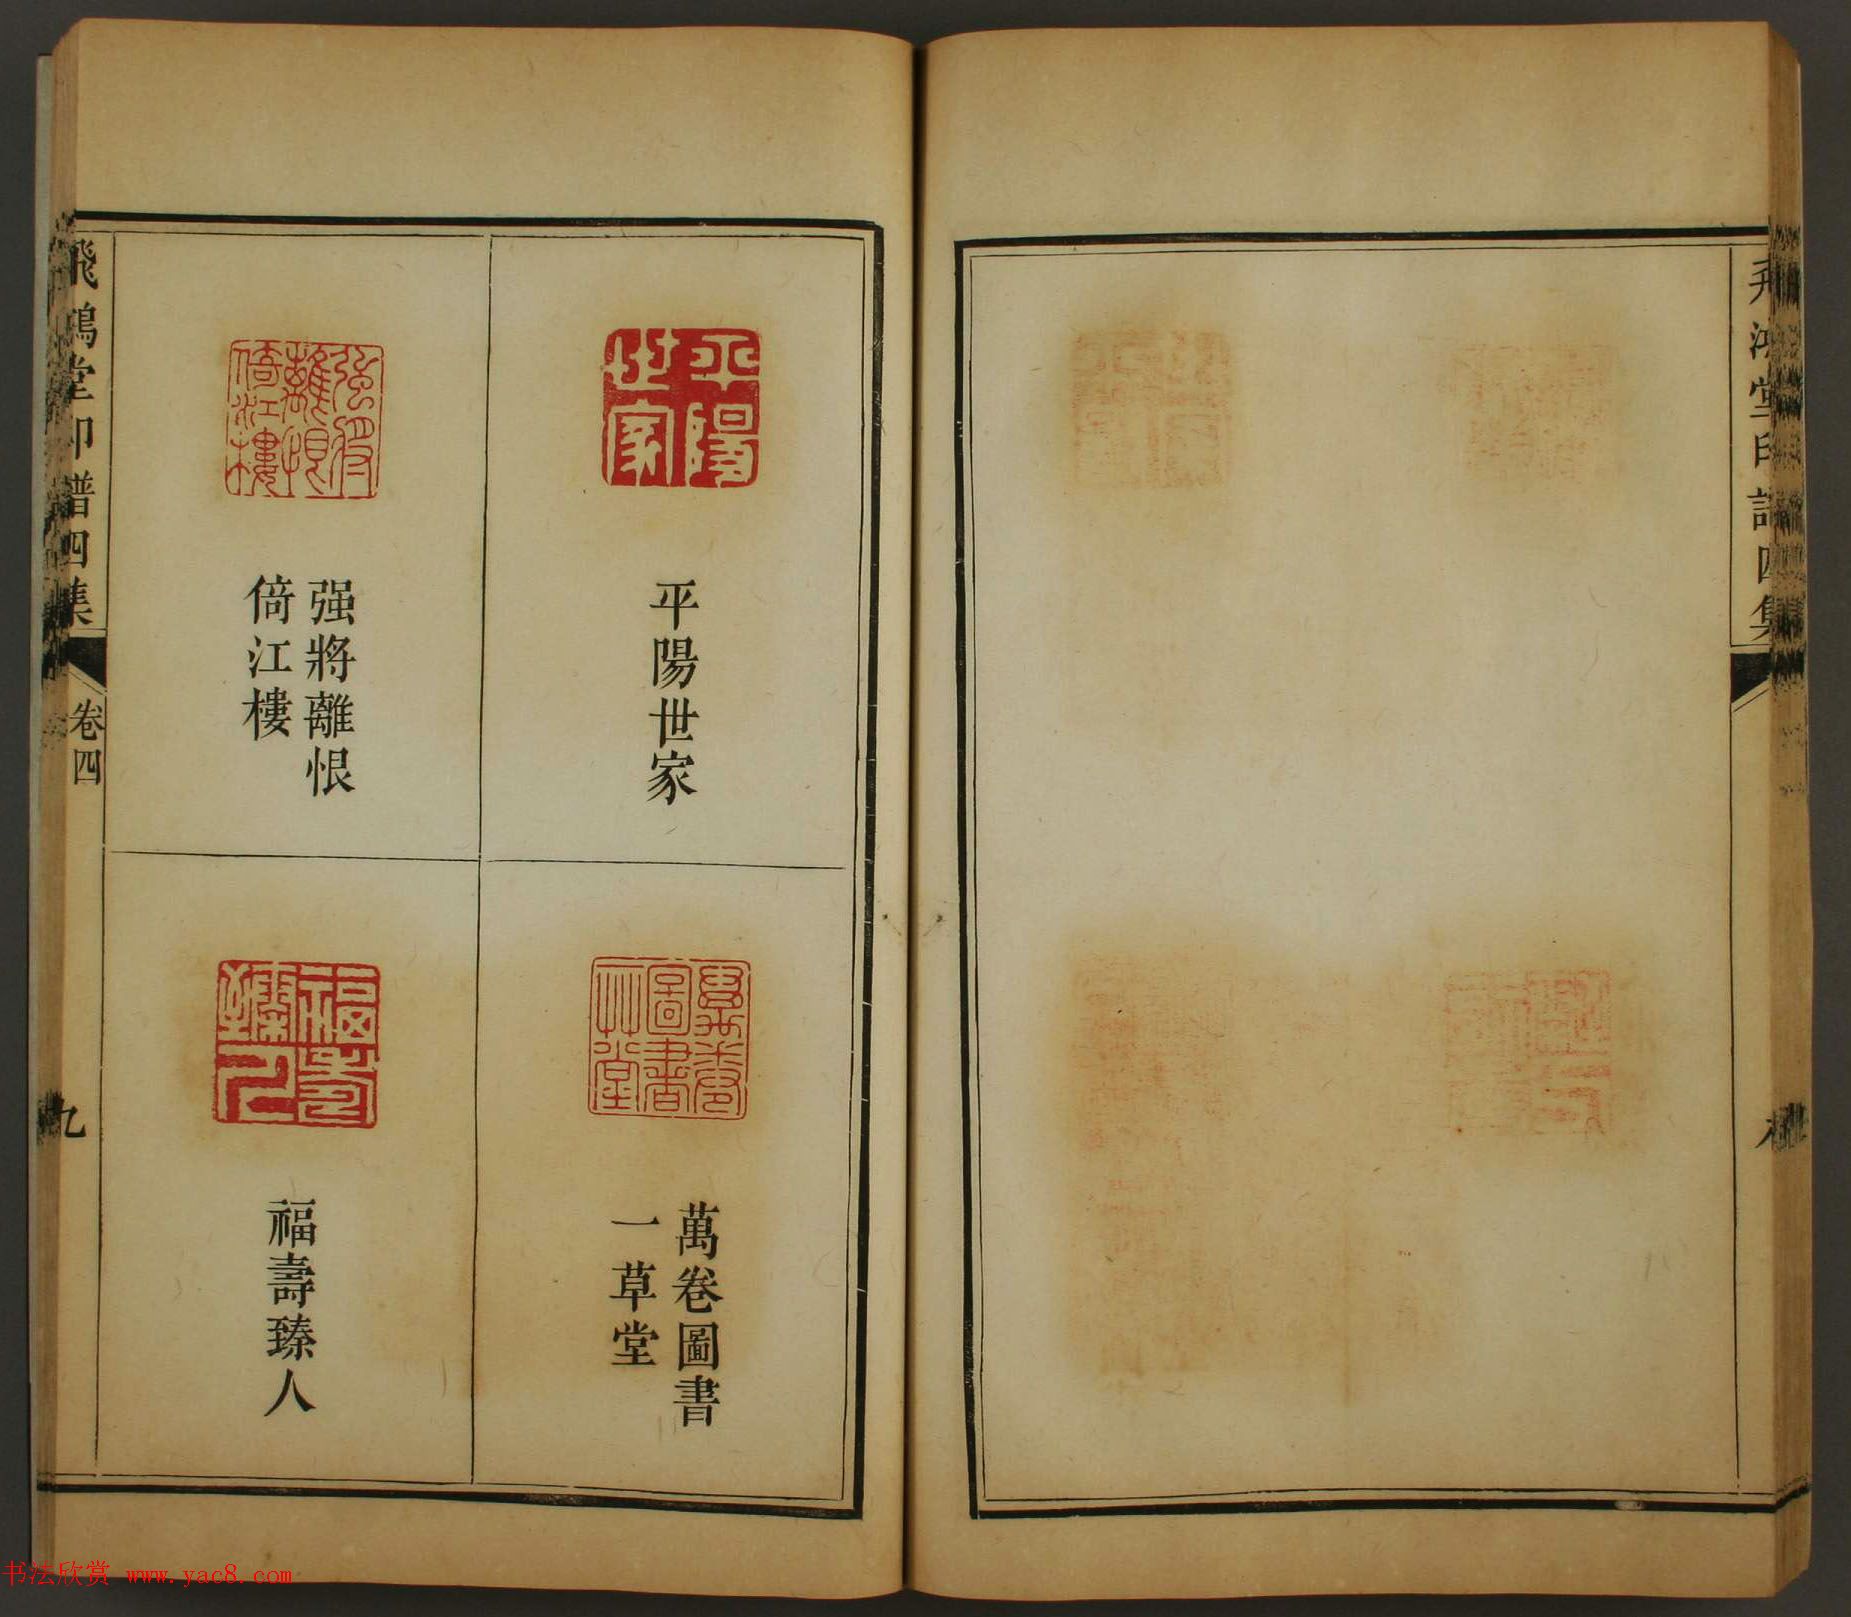 飛鴻堂印譜四集
卷四
九
平陽世家
平陽世家
强將離恨
倚江樓
强將離恨
倚江樓
萬卷圖書
一草堂
萬卷圖書
一草堂
福壽臻人
福壽臻人
飛鴻堂印譜四集
八
书法欣赏 www.yac8.com